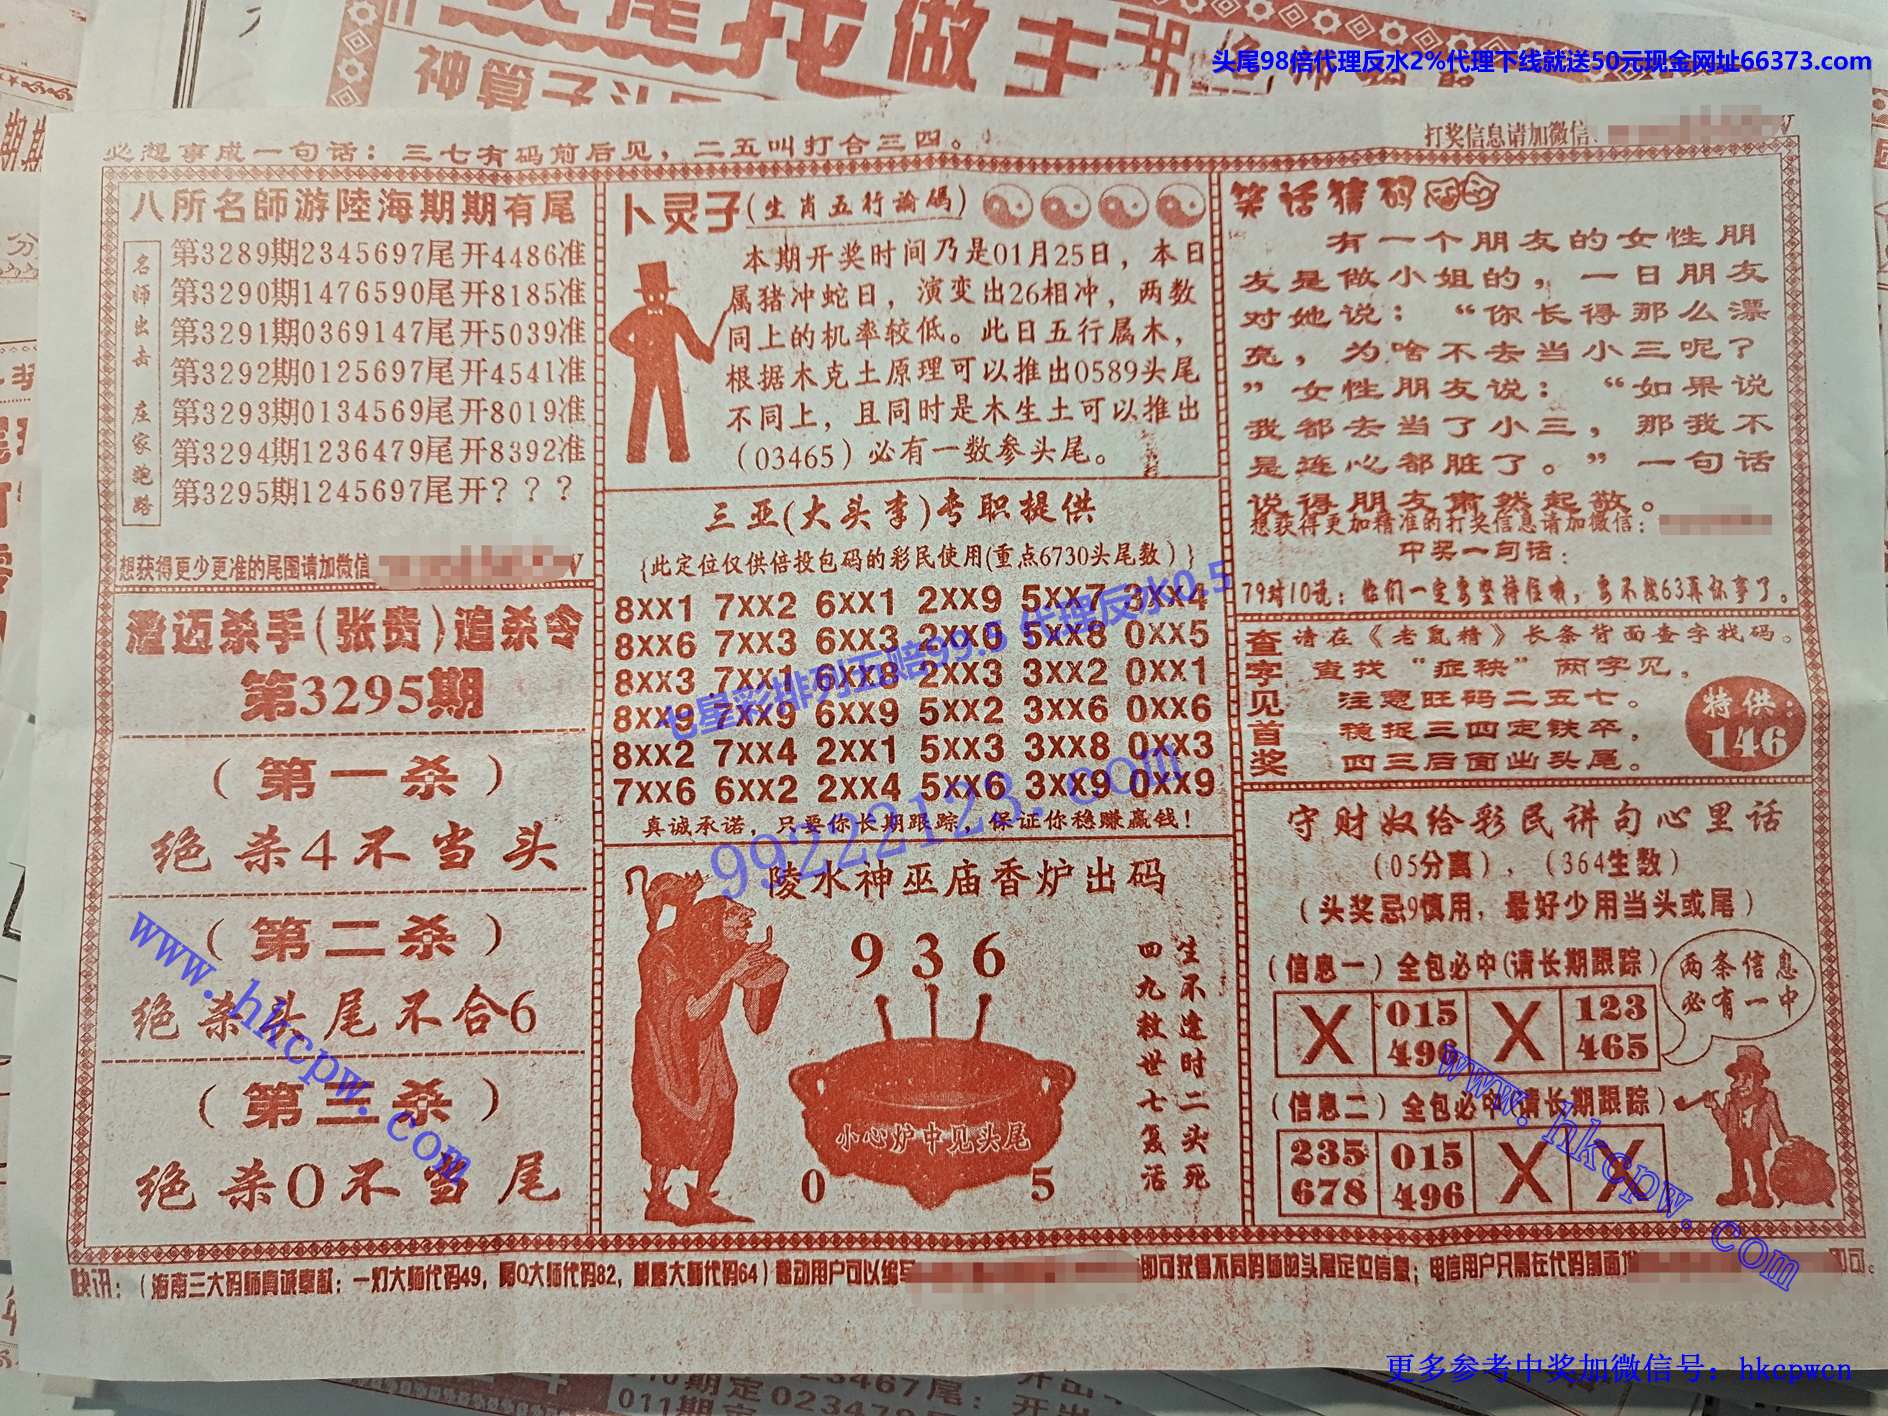 头尾98倍代理反水2%代理下线就送50元现金网址66373.com
神算子
必想事成一句话：三七有码前后见，二五叫打合三四。
打奖信息请加微信
八所名師游陸海期期有尾
名师出击 庄家跑路
第3289期2345697尾开4486准
第3290期1476590尾开8185准
第3291期0369147尾开5039准
第3292期0125697尾开4541准
第3293期0134569尾开8019准
第3294期1236479尾开8392准
第3295期1245697尾开？？？
想获得更少更准的尾图请加微信
澄迈杀手(张贵)追杀令
第3295期
（第一杀）
绝杀4不当头
（第二杀）
绝杀头尾不合6
（第三杀）
绝杀0不当尾
卜灵子(生肖五行論碼)
本期开奖时间乃是01月25日，本日
属猪冲蛇日，演变出26相冲，两数
同上的机率较低。此日五行属木，
根据木克土原理可以推出0589头尾
不同上，且同时是木生土可以推出
（03465）必有一数参头尾。
三亚(大头李)专职提供
{此定位仅供倍投包码的彩民使用(重点6730头尾数）}
8XX1 7XX2 6XX1 2XX9 5XX7 3XX4
8XX6 7XX3 6XX3 2XX0 5XX8 0XX5
8XX3 7XX1 6XX8 2XX3 3XX2 0XX1
8XX9 7XX9 6XX9 5XX2 3XX6 0XX6
8XX2 7XX4 2XX1 5XX3 3XX8 0XX3
7XX6 6XX2 2XX4 5XX6 3XX9 0XX9
七星彩排列五赔99.5 代理反水0.5
99222123.com
真诚承诺，只要你长期跟踪，保证你稳赚赢钱！
陵水神巫庙香炉出码
9 3 6
生不逢时二头死
四九救世七复活
小心炉中见头尾
0 5
笑话猜码
有一个朋友的女性朋
友是做小姐的，一日朋友
对她说：“你长得那么漂
亮，为啥不去当小三呢？
”女性朋友说：“如果说
我都去当了小三，那我不
是连心都脏了。”一句话
说得朋友肃然起敬。
想获得更加精准的打奖信息请加微信：
中奖一句话：
79对10说：你们一定要坚持住哦，要不找63再怀事了。
查字见首奖
请在《老鼠精》长条背面查字找码。
查找“症秧”两字见，
注意旺码二五七。
稳捉三四定铁卒，
四三后面出头尾。
特供：
146
守财奴给彩民讲句心里话
（05分离），（364生数）
（头奖忌9慎用，最好少用当头或尾）
（信息一）全包必中(请长期跟踪）
X 015 496 X 123 465
两条信息
必有一中
（信息二）全包必中(请长期跟踪）
235 678 015 496 X X
www.hkcpw.com
www.hkcpw.com
快讯：（海南三大码师真诚奉献：一灯大师代码49，阿Q大师代码82，顺
大师代码64）移动用户可以编写
即可获得不同码师的头尾定位信息；电信用户只需在代码前面加
即可。
更多参考中奖加微信号：hkcpwcn